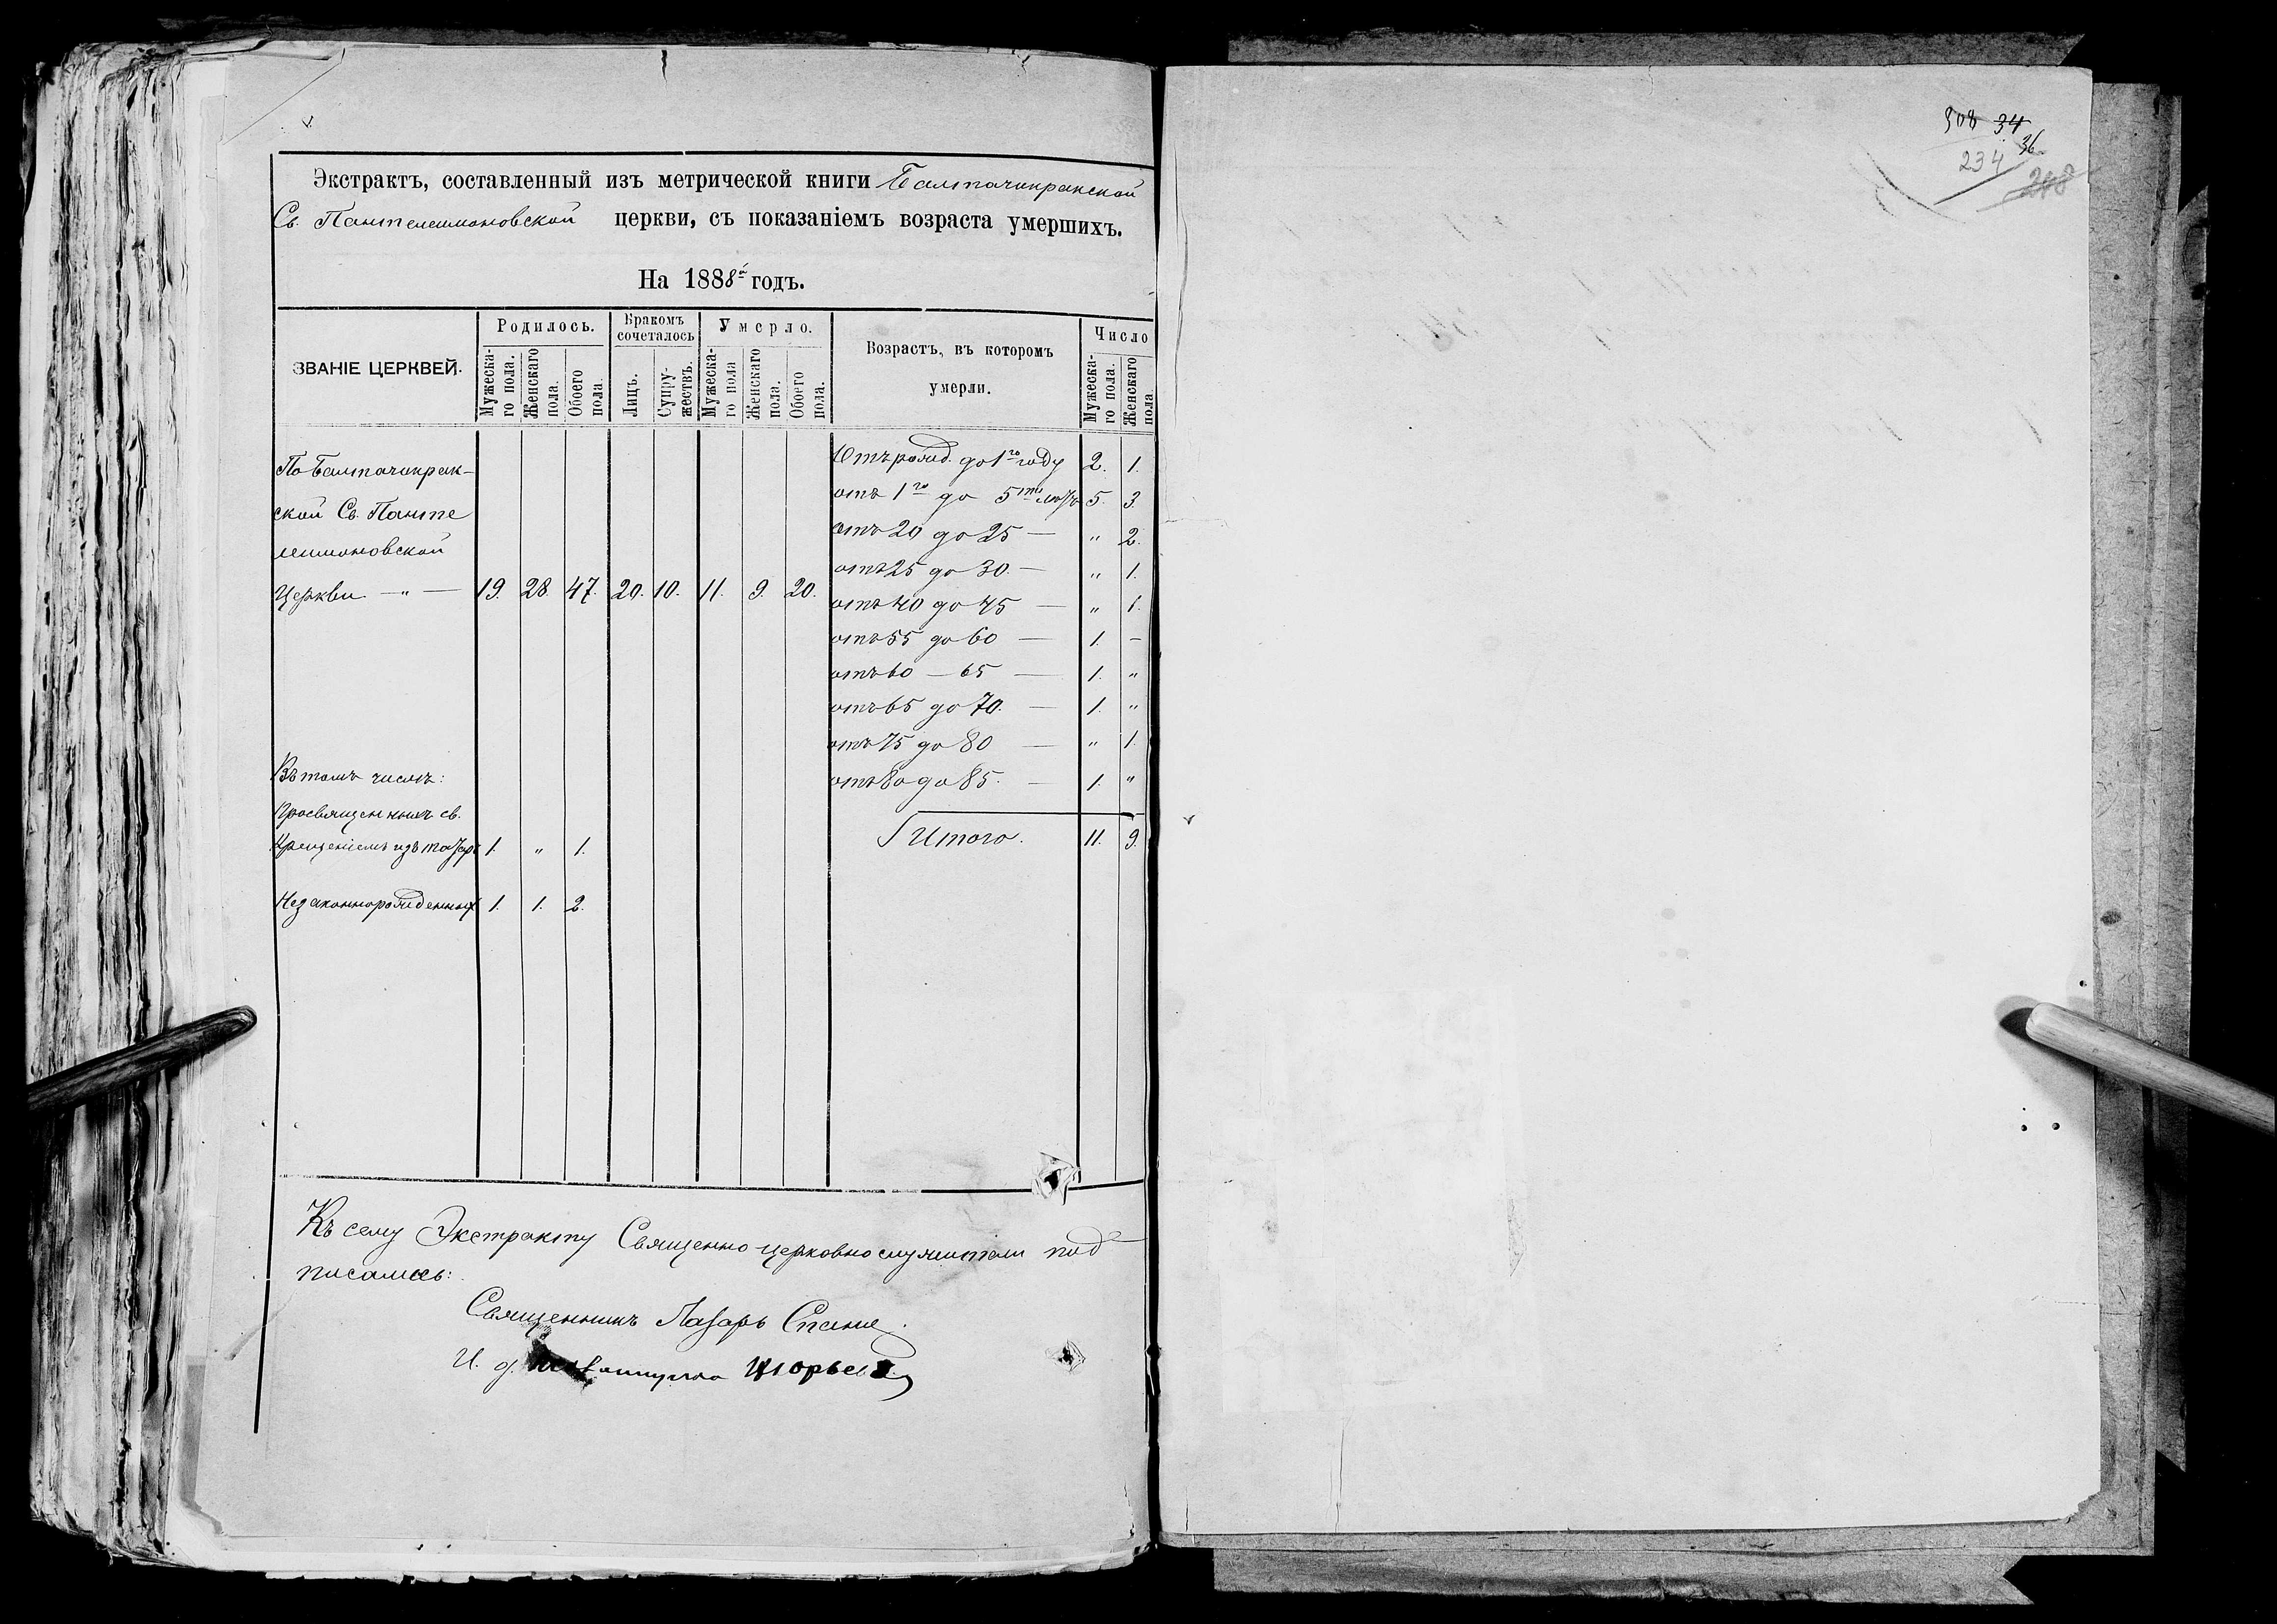 Экстрактъ, составленный изъ метрической книги Балтачокракской
Св. Пантелеимоновской церкви, съ показаніемъ возраста умершихъ.
На 1888й годъ.
ЗВАНІЕ ЦЕРКВЕЙ.
Родилось.
Бракомъ сочеталось
Умерло.
Возрастъ, въ которомъ умерли.
Число
Мужеска-го пола.
Женскаго пола.
Обоего пола.
Лицъ.
Супру-жествъ.
Мужеска-го пола
Женскаго пола.
Обоего пола.
Мужеска-го пола.
Женскаго пола
По Балтачокрак-
ской Св. Панте
леимоновской
Церкви — „ — 19. 28. 47. 20. 10. 11. 9. 20.
Отъ рожд. до 1го году 2. 1.
отъ 1го до 5ти лѣтъ 5. 3.
отъ 20 до 25 — „ 2.
отъ 25 до 30. — „ 1.
отъ 40 до 45 — „ 1.
отъ 55 до 60 — 1. —
отъ 60 — 65 — 1. „
отъ 65 до 70. — 1. „
отъ 75 до 80 — „ 1.
отъ 80 до 85. — 1. „
Итого. 11. 9.
Въ томъ числѣ:
Просвященныхъ св.
Крещеніемъ изъ татаръ 1. „ 1.
Незаконнорожденных 1. 1. 2.
Къ сему Экстракту Священно-церковнослужители под-
писались:
Священникъ Лазарь Спание
И. д.
308 34
36
234
208